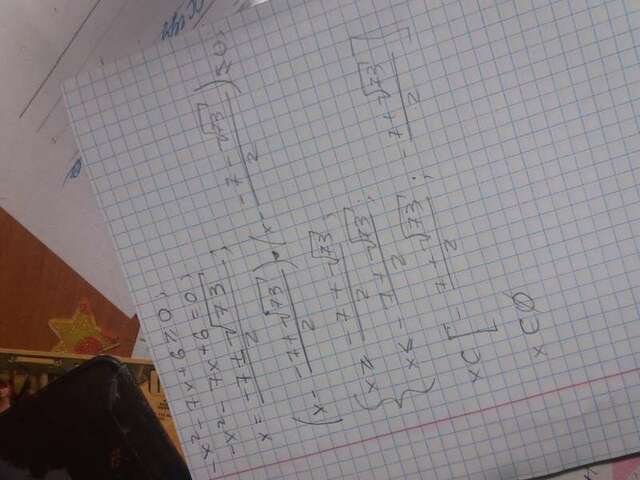 -x²-7x+6≥0;
-x²-7x+6=0;
x = (-7±√73)/2;
(x - (-7+√73)/2)·(x - (-7-√73)/2)≥0;
{x ≥ (-7+√73)/2;
{x < -(7+√73)/2;
x∈[-(7+√73)/2; -(7+√73)/2]
x∈∅